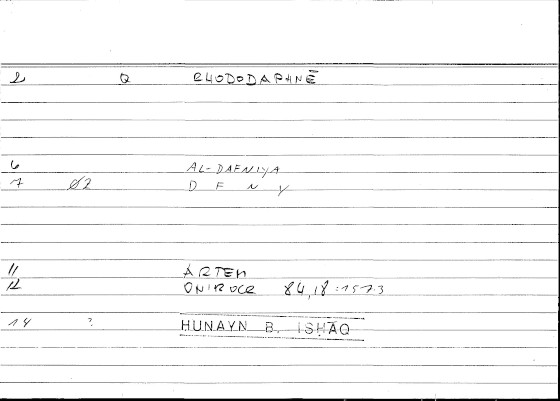 2 Q RHODODAPHNĒ
6 AL-DAFNIYA
7 02 D F N Y
11 ARTEM
12 ONIROCR 84,18:157.3
14 ? HUNAYN B. ISHĀQ